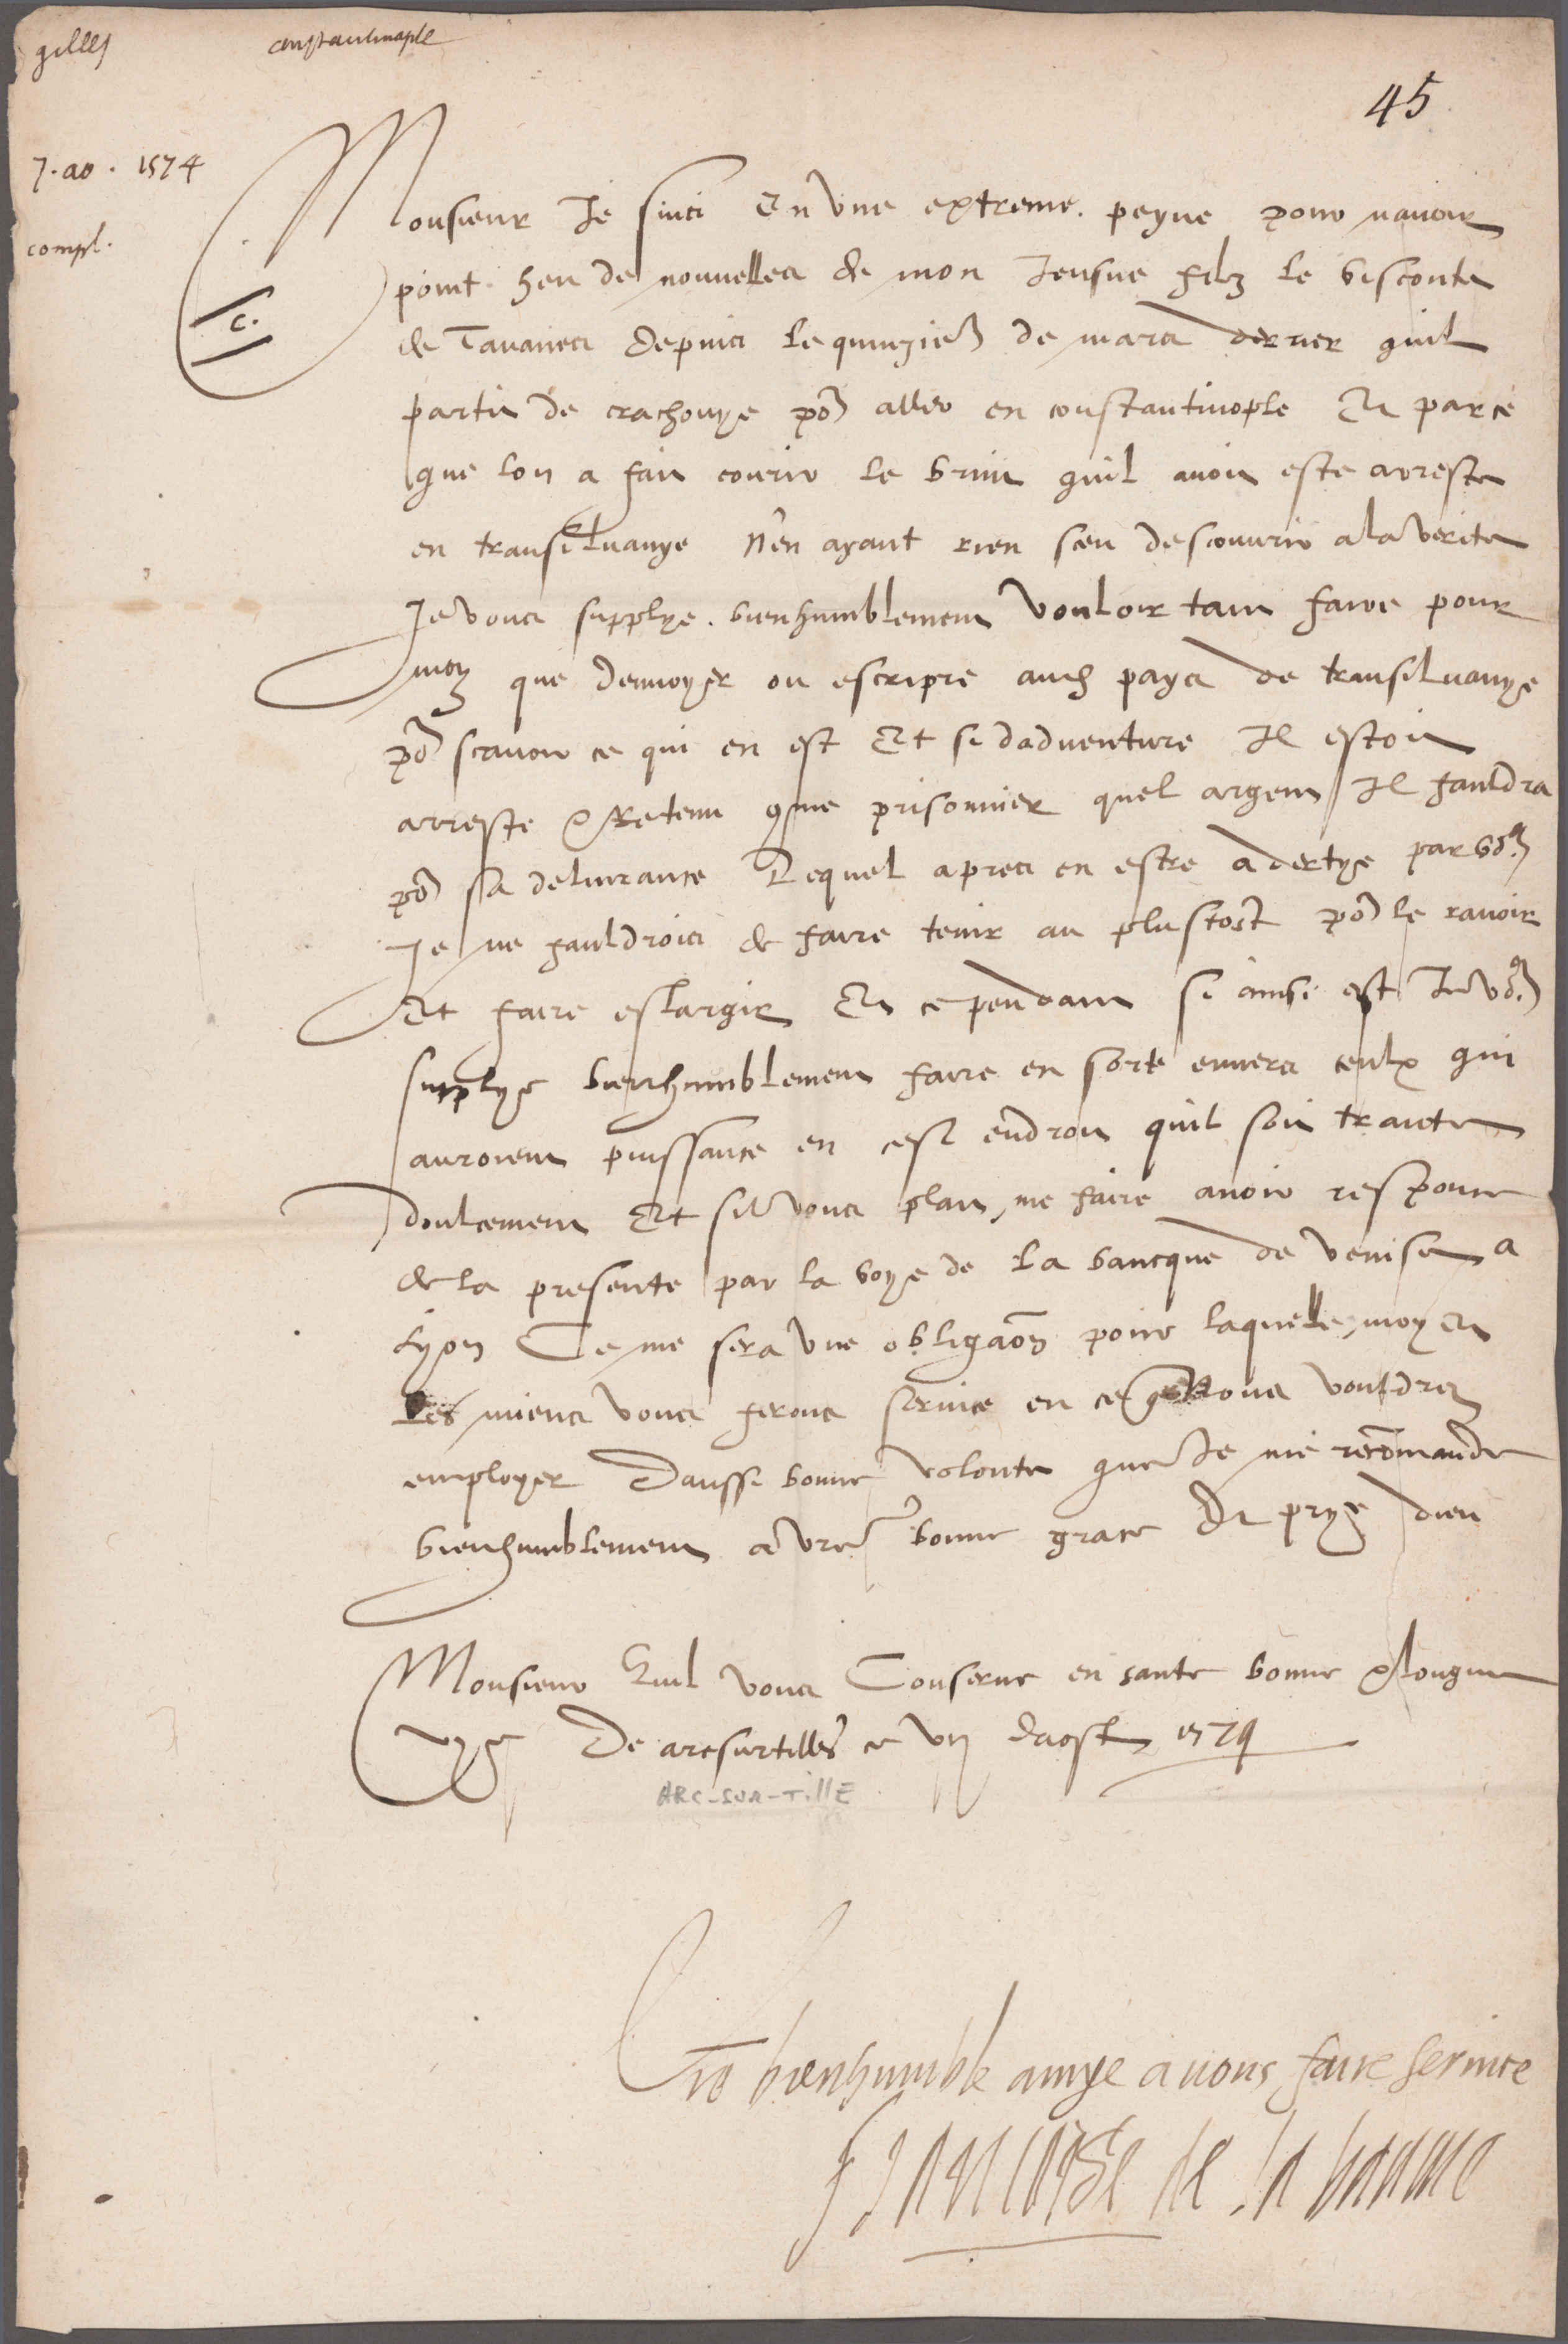 gilles constantinople
45
7. ao. 1574
compl.
c.
Monsieur Je suis En une extreme peyne pour navoir
point heu de nouvelles de mon Jeusne filz le visconte
de Tavanes depuis le quinziem de mars dernier quil
partit de crachouye po[ur] aller en constantinople Et parce
que lon a fait courir le bruit quil avoit este arreste
en transiluanye N'en ayant rien sceu descouvrir a la verite
Je vous supplye bien humblement Vouloir tant faire pour
moy que denvoyer ou escripre audit pays de transiluanye
po[ur] scavoir ce qui en est Et si dadventure Il estoit
arreste & Retenu comme prisonnier quel argent Il fauldra
po[ur] sa delivrance Lequel apres en estre advertye par vo[us]
Je ne fauldrois de faire tenir au plus tost po[ur] le ravoir
Et faire eslargir Et ce pendant si ainsi est Je vo[us]
supplye bien humblement faire en sorte envers ceulx qui
auroient puissance en cest endroit quil soit traicte
doulcement Et sil vous plait me faire avoir response
de la presente par la voye de La bancque de Venise a
Lyon Ce me sera une obligaon pour laquelle moy Et
Les miens vous ferons service en ce que Vous vouldrez
employer Daussi bonne volonte que Je me recommande
bien humblement a vre bonne grace Et prye dieu
Monsieur Quil vous Conserve en sante bonne & longue
vye De arcsurtilles ce vij daost 1574
ARC-SUR-TillE
Vre bien humble amye a vous faire service
Francoise de la baume